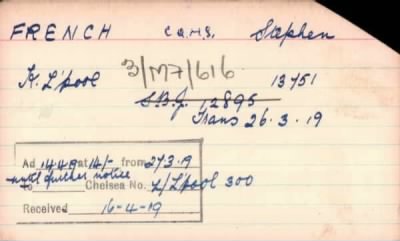 FRENCH C.Q.M.S. Stephen
K. L'pool 3/M7/616 13751
S.B.J. 12895
Trans 26.3.19
Ad 1449 at 14/- from 27.3.19
until further notice
to Chelsea No. Z/L'pool 300
Received 16-4-19